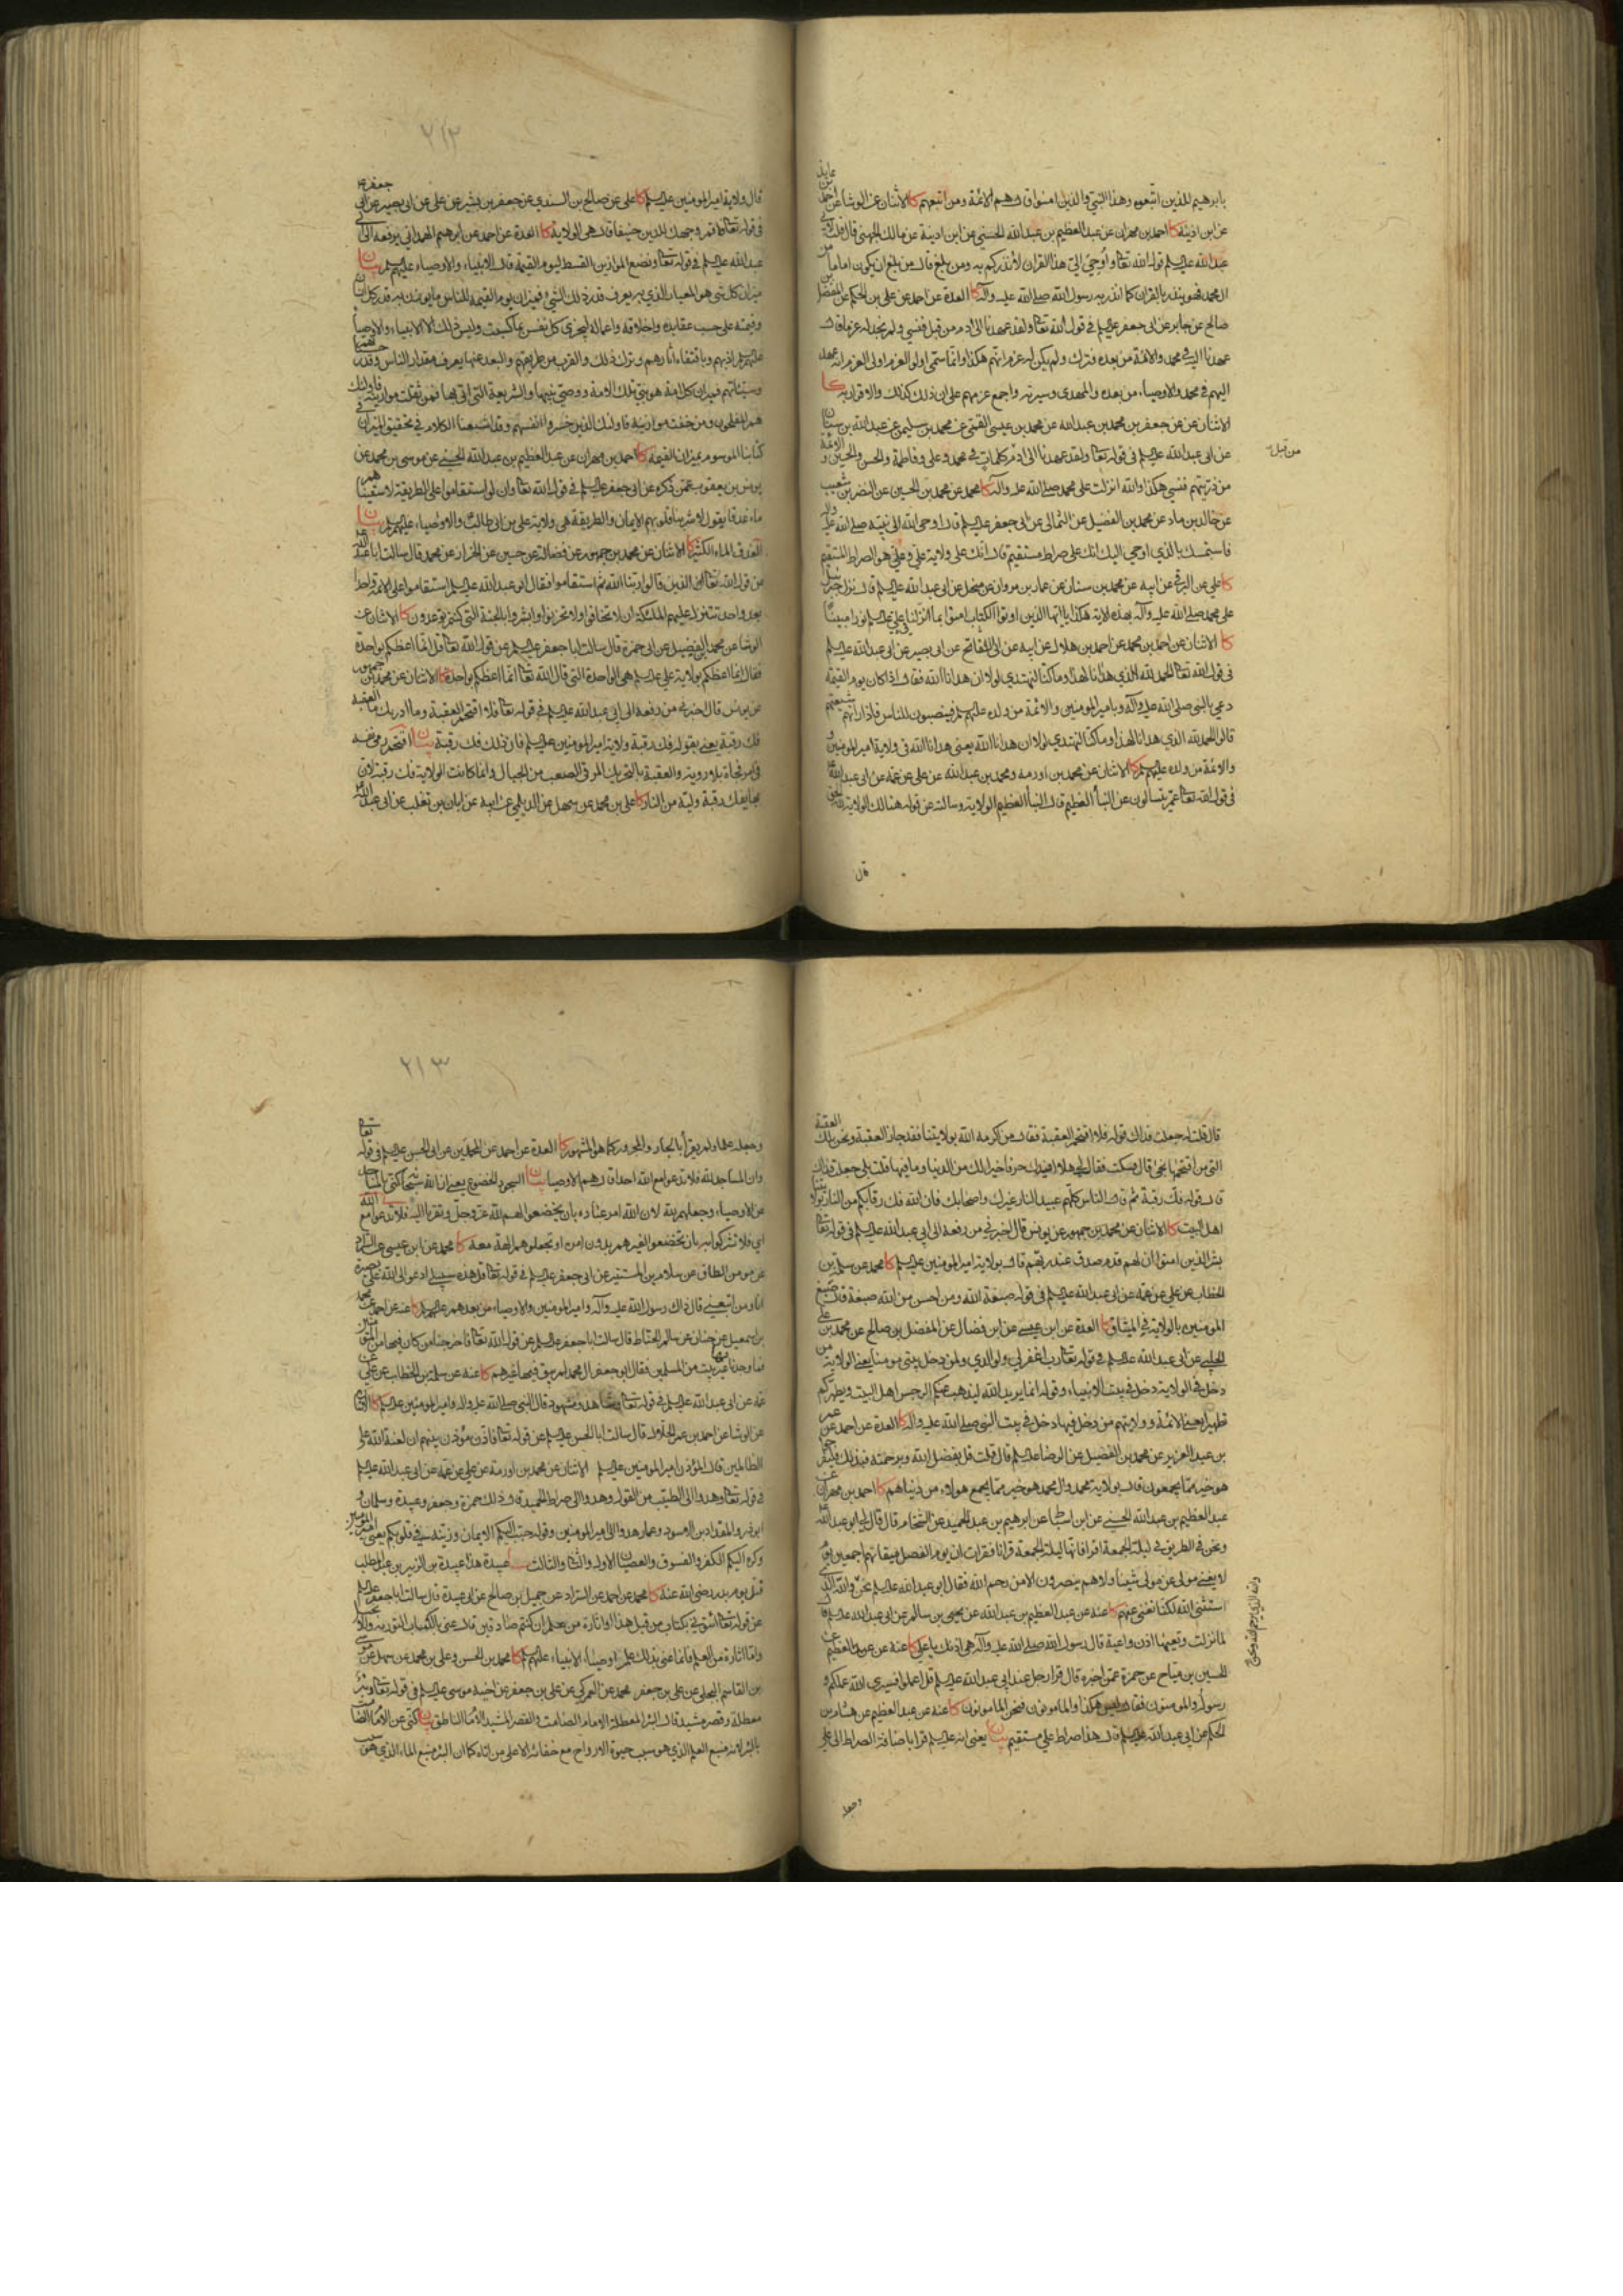 بابرهيم للذين اتبعوه وهذا النبي والذين امنوا قال هم الائمة ومن اتبعهم كا الاثنان عن الوشا عن احمد بن عايذ
عن ابن اذينة كا احمد بن مهران عن عبد العظيم بن عبد الله الحسني عن ابن اذينة عن مالك الجهني قال قلت لابي
عبد الله عليه السلم قوله الله تعا واوحي الي هذا القران لأنذركم به ومن بلغ قال من بلغ ان يكون اماما من
ال محمد فهو ينذر بالقران كما انذر به رسول الله صلى الله عليه وآله كا العدة عن احمد عن علي بن الحكم عن المفضل بن
صالح عن جابر عن ابي جعفر عليه السلم في قول الله تعا ولقد عهدنا الى ادم من قبل فنسي ولم نجد له عزما قال
عهدنا اليه في محمد والائمة من بعده فترك ولم يكن له عزم انهم هكذا وانما سمي اولوا العزم اولي العزم انه عهد
اليهم في محمد والاوصياء من بعده والمهدي وسيرته واجمع عزمهم على ان ذلك كذلك والاقرار به كا
الاثنان عن جعفر بن محمد بن عبد الله عن محمد بن عيسى القمي عن محمد بن سليمن عن عبد الله بن سنان
عن ابي عبد الله عليه السلم في قوله تعا ولقد عهدنا الى ادم كلمات في محمد وعلي وفاطمة والحسن والحسين والائمة
من قبل
من ذريتهم فنسي هكذا والله انزلت على محمد صلى الله عليه وآله كا محمد عن محمد بن الحسين عن النضر بن شعيب
عن خالد بن ماد عن محمد بن الفضيل عن الثمالي عن ابي جعفر عليه السلم قال اوحى الله الى نبيه صلى الله عليه وآله
فاستمسك بالذي اوحي اليك انك على صراط مستقيم قال انك على ولاية علي وعلي هو الصراط المستقيم
كا علي عن البرقي عن ابيه عن محمد بن سنان عن عمار بن مروان عن منخل عن ابي عبد الله عليه السلم قال نزل جبرئيل
على محمد صلى الله عليه وآله بهذه الاية هكذا يا ايها الذين اوتوا الكتاب امنوا بما انزلنا في علي نورا مبينا
كا الاثنان عن احمد بن محمد عن احمد بن هلال عن ابيه عن ابي السفاتج عن ابي بصير عن ابي عبد الله عليه السلم
في قول الله تعا الحمد لله الذي هدانا لهذا وما كنا لنهتدي لولا ان هدانا الله فقال اذا كان يوم القيمة
دعي بالنبي صلى الله عليه وآله وبامير المؤمنين والائمة من ولده عليهم السلم فينصبون للناس فاذا راتهم شيعتهم
قالوا الحمد لله الذي هدانا لهذا وما كنا لنهتدي لولا ان هدانا الله يعني هدانا الله في ولاية امير المؤمنين و
والائمة من ولده عليهم السلم كا الاثنان عن محمد بن اورمة ومحمد بن عبد الله عن علي عن عمه عن ابي عبد الله
في قول الله تعا عم يتسالون عن النبأ العظيم قال النبأ العظيم الولاية وسالته عن قوله هنالك الولاية لله الحق
قال
٢١٢
قال ولاية امير المؤمنين عليه السلم كا علي عن صالح بن السندي عن جعفر بن بشير عن علي عن ابي بصير عن ابي جعفر
في قوله تعا فاقم وجهك للدين حنيفا قال هي الولاية كا العدة عن احمد عن ابرهيم الهمداني يرفعه الى ابي
عبد الله عليه السلم في قوله تعا ونضع الموازين القسط ليوم القيمة قال الانبياء والاوصياء عليهم السلم بيان
ميزان كل شي هو المعيار الذي به يعرف قدر ذلك الشي فميزان يوم القيمة للناس ما يوزن به قدر كل انسان
وقيمته على حسب عقايده واخلاقه واعماله ليجزى كل نفس بما كسبت وليس ذلك الا الانبياء والاوصيا
عليهم السلم اذ بهم وباقتفاء اثارهم وترك ذلك والقرب من طريقتهم والبعد عنها يعرف مقدار الناس وقدر حسناتهم
وسيئاتهم فميزان كل امة هو نبي تلك الامة ووصي نبيها والشريعة التي اتى بها فمن ثقلت موازينه فاولئك
هم المفلحون ومن خفت موازينه فاولئك الذين خسروا انفسهم وقد اشبعنا الكلام في تحقيق الميزان في
كتابنا الموسوم بميزان القيمة كا احمد بن مهران عن عبد العظيم بن عبد الله الحسني عن موسى بن محمد عن
يونس بن يعقوب عمن ذكره عن ابي جعفر عليه السلم في قول الله تعا وان لو استقاموا على الطريقة لاسقيناهم
ماء غدقا يقول لاشربنا قلوبهم الايمان والطريقة هي ولاية علي بن ابي طالب والاوصياء عليهم السلم بيان
الغدق الماء الكثير كا الاثنان عن محمد بن جمهور عن فضالة عن حسين عن الخزاز عن محمد قال سالت ابا عبد الله
عن قول الله تعا الذين قالوا ربنا الله ثم استقاموا فقال ابو عبد الله عليه السلم استقاموا على الائمة واحدا
بعد واحد تتنزل عليهم الملئكة ان لا تخافوا ولا تحزنوا وابشروا بالجنة التي كنتم توعدون كا الاثنان عن
الوشا عن محمد بن الفضيل عن ابي حمزة قال سالت ابا جعفر عليه السلم عن قول الله تعا قل انما اعظكم بواحدة
فقال انما اعظكم بولاية علي عليه السلم هي الواحدة التي قال الله تعا انما اعظكم بواحدة كا الاثنان عن محمد بن جمهور
عن يونس قال اخبرني من رفعه الى ابي عبد الله عليه السلم في قوله تعا فلا اقتحم العقبة وما ادريك ما العقبة
فك رقبة يعني بقوله فك رقبة ولاية امير المؤمنين عليه السلم فان ذلك فك رقبة بيان اقتحم رمى نفسه
في امر فجاة بلا روية والعقبة بالتحريك المرقى الصعب من الجبال وانما كانت الولاية فك رقبة لان
بها يفك رقبة وليه من النار كا علي بن محمد عن سهل عن الديلمي عن ابيه عن ابان بن تغلب عن ابي عبد الله
قال قلت له جعلت فداك قوله فلا اقتحم العقبة فقال من اكرمه الله بولايتنا فقد جاز العقبة ونحن تلك العقبة
التي من اقتحمها نجى قال فسكت فقال لي هلا افيدك حرفا خير لك من الدنيا وما فيها قلت بلى جعلت فداك
قال قوله فك رقبة ثم قال الناس كلهم عبيد النار غيرك واصحابك فان الله فك رقابكم من النار بولايتنا
اهل البيت كا الاثنان عن محمد بن جمهور عن يونس قال اخبرني من رفعه الى ابي عبد الله عليه السلم في قوله تعا
بشر الذين امنوا ان لهم قدم صدق عند ربهم قال بولاية امير المؤمنين عليه السلم كا محمد عن سلمة بن
الخطاب عن علي عن عمه عن ابي عبد الله عليه السلم في قوله صبغة الله ومن احسن من الله صبغة قال صبغ
المؤمنين بالولاية في الميثاق كا العدة عن ابن عيسى عن ابن فضال عن المفضل بن صالح عن محمد بن علي
الحلبي عن ابي عبد الله عليه السلم في قوله تعا رب اغفر لي ولوالدي ولمن دخل بيتي مؤمنا يعني الولاية من
دخل في الولاية دخل في بيت الانبياء وقوله انما يريد الله ليذهب عنكم الرجس اهل البيت ويطهركم
تطهيرا يعني الائمة وولايتهم من دخل فيها دخل في بيت النبي صلى الله عليه وآله كا العدة عن احمد عن عمر
بن عبد العزيز عن محمد بن الفضيل عن الرضا عليه السلم قال قلت قل بفضل الله وبرحمته فبذلك فليفرحوا
هو خير مما يجمعون قال بولاية محمد وال محمد هو خير مما يجمع هؤلاء من دنياهم كا احمد بن مهران عن
عبد العظيم بن عبد الله الحسني عن ابن اسباط عن ابرهيم بن عبد الحميد عن الشحام قال قال لي ابو عبد الله
ونحن في الطريق في ليلة الجمعة اقرا فانها ليلة الجمعة قرانا فقرات ان يوم الفصل ميقاتهم اجمعين يوم
لا يغني مولى عن مولى شيئا ولا هم ينصرون الا من رحم الله فقال ابو عبد الله عليه السلم نحن والله الذي
استثنى الله لكنا نغني عنهم كا عنه عن عبد العظيم بن عبد الله عن يحيى بن سالم عن ابي عبد الله عليه السلم قال
لما نزلت وتعيها اذن واعية قال رسول الله صلى الله عليه وآله هي اذنك يا علي كا عنه عن عبد العظيم عن
الحسين بن مياح عن حمزة عمن اخبره قال قرا رجل عند ابي عبد الله عليه السلم قل اعملوا فسيرى الله عملكم و
رسوله والمؤمنون فقال ليس هكذا والمامونون فنحن المامونون كا عنه عن عبد العظيم عن هشام بن
الحكم عن ابي عبد الله عليه السلم قال هذا صراط علي مستقيم بيان يعني انه عليه السلم قرا باضافة الصراط الى علي
وجعله
٢١٣
وجعله علما ولم يقرأ بالجار والمجرور كما هو المشهور كا العدة عن احمد عن المحمدين عن ابي الحسن عليه السلم في قوله تعا
وان المساجد لله فلا تدعوا مع الله احدا قال هم الاوصيا بيان السجود الخضوع يعني ان الله سبحانه كنى بالمساجد
عن الاوصياء وجعلهم لله لان الله امر عباده بان يخضعوا لهم لله عز وجل وتقربا اليه فلا تدعوا مع الله
اي فلا تشركوا به بان تخضعوا لغيرهم بدون امره او تجعلوهم الهة معه كا محمد عن ابن عيسى عن السراد
عن مومن الطاق عن سلام بن المستنير عن ابي جعفر عليه السلم في قوله تعا قل هذه سبيلي ادعو الى الله على بصيرة
انا ومن اتبعني قال ذاك رسول الله عليه وآله وامير المؤمنين والاوصياء من بعدهم عليهم السلم كا عنه عن احمد عن محمد
بن اسمعيل عن حنان عن سالم الحناط قال سالت ابا جعفر عليه السلم عن قول الله تعا فاخرجنا من كان فيها من المؤمنين
فما وجدنا فيها غير بيت من المسلمين فقال ابو جعفر ال محمد لم يبق فيها غيرهم كا عنه عن سلمة بن الخطاب عن علي عن
عمه عن ابي عبد الله عليه السلم في قوله تعا وشاهد ومشهود قال النبي صلى الله عليه وآله وامير المؤمنين عليه السلم كا الاثنان
عن الوشا عن احمد بن عمر الحلال قال سالت ابا الحسن عليه السلم عن قوله تعا فاذن مؤذن بينهم ان لعنة الله على
الظالمين قال المؤذن امير المؤمنين عليه السلم الاثنان عن محمد بن اورمة عن علي عن عمه عن ابي عبد الله عليه السلم
في قوله تعا وهدوا الى الطيب من القول وهدوا الى صراط الحميد قال ذلك حمزة وجعفر وعبيدة وسلمان و
ابو ذر والمقداد بن الاسود وعمار هدوا الى امير المؤمنين وقوله حبب اليكم الايمان وزينه في قلوبكم يعني امير المؤمنين
وكره اليكم الكفر والفسوق والعصيان الاول والثاني والثالث بيان عبيدة هذا عبيدة بن الحارث بن عبد المطلب
قتل يوم بدر رضي الله عنه كا محمد عن احمد عن السراد عن جميل بن صالح عن ابي عبيدة قال سالت ابا جعفر عليه السلم
عن قوله تعا ائتوني بكتاب من قبل هذا او اثارة من علم ان كنتم صادقين قال عنى بالكتاب التورية والانجيل
واما اثارة من العلم فانما عنى بذلك علم اوصياء الانبياء عليهم السلم كا محمد بن الحسن وعلي بن محمد عن سهل عن موسى
بن القاسم البجلي عن علي بن جعفر محمد عن العمركي عن علي بن جعفر عن اخيه موسى عليه السلم في قوله تعا وبئر
معطلة وقصر مشيد قال البئر المعطلة الامام الصامت والقصر المشيد الامام الناطق بيان كنى عن الامام الصامت
بالبئر لانه منبع العلم الذي هو سبب حيوة الارواح مع خفائه الا على من اتاه كما ان البئر منبع الماء الذي هو سبب